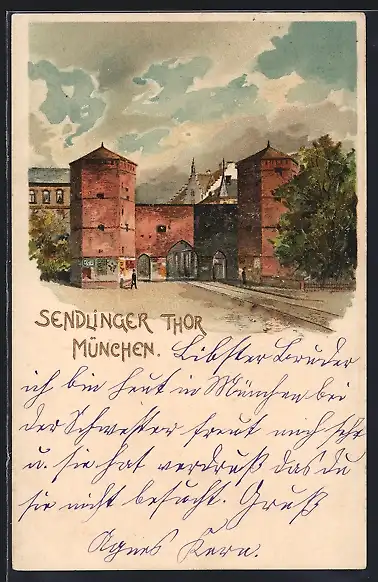 SENDLINGER THOR
MÜNCHEN.
Libster Bruder
ich bin heut in München bei
der Schwester freut mich sehr
u. sie hat verdruß das du
sie nicht besucht. Gruß
Agnes Kern.